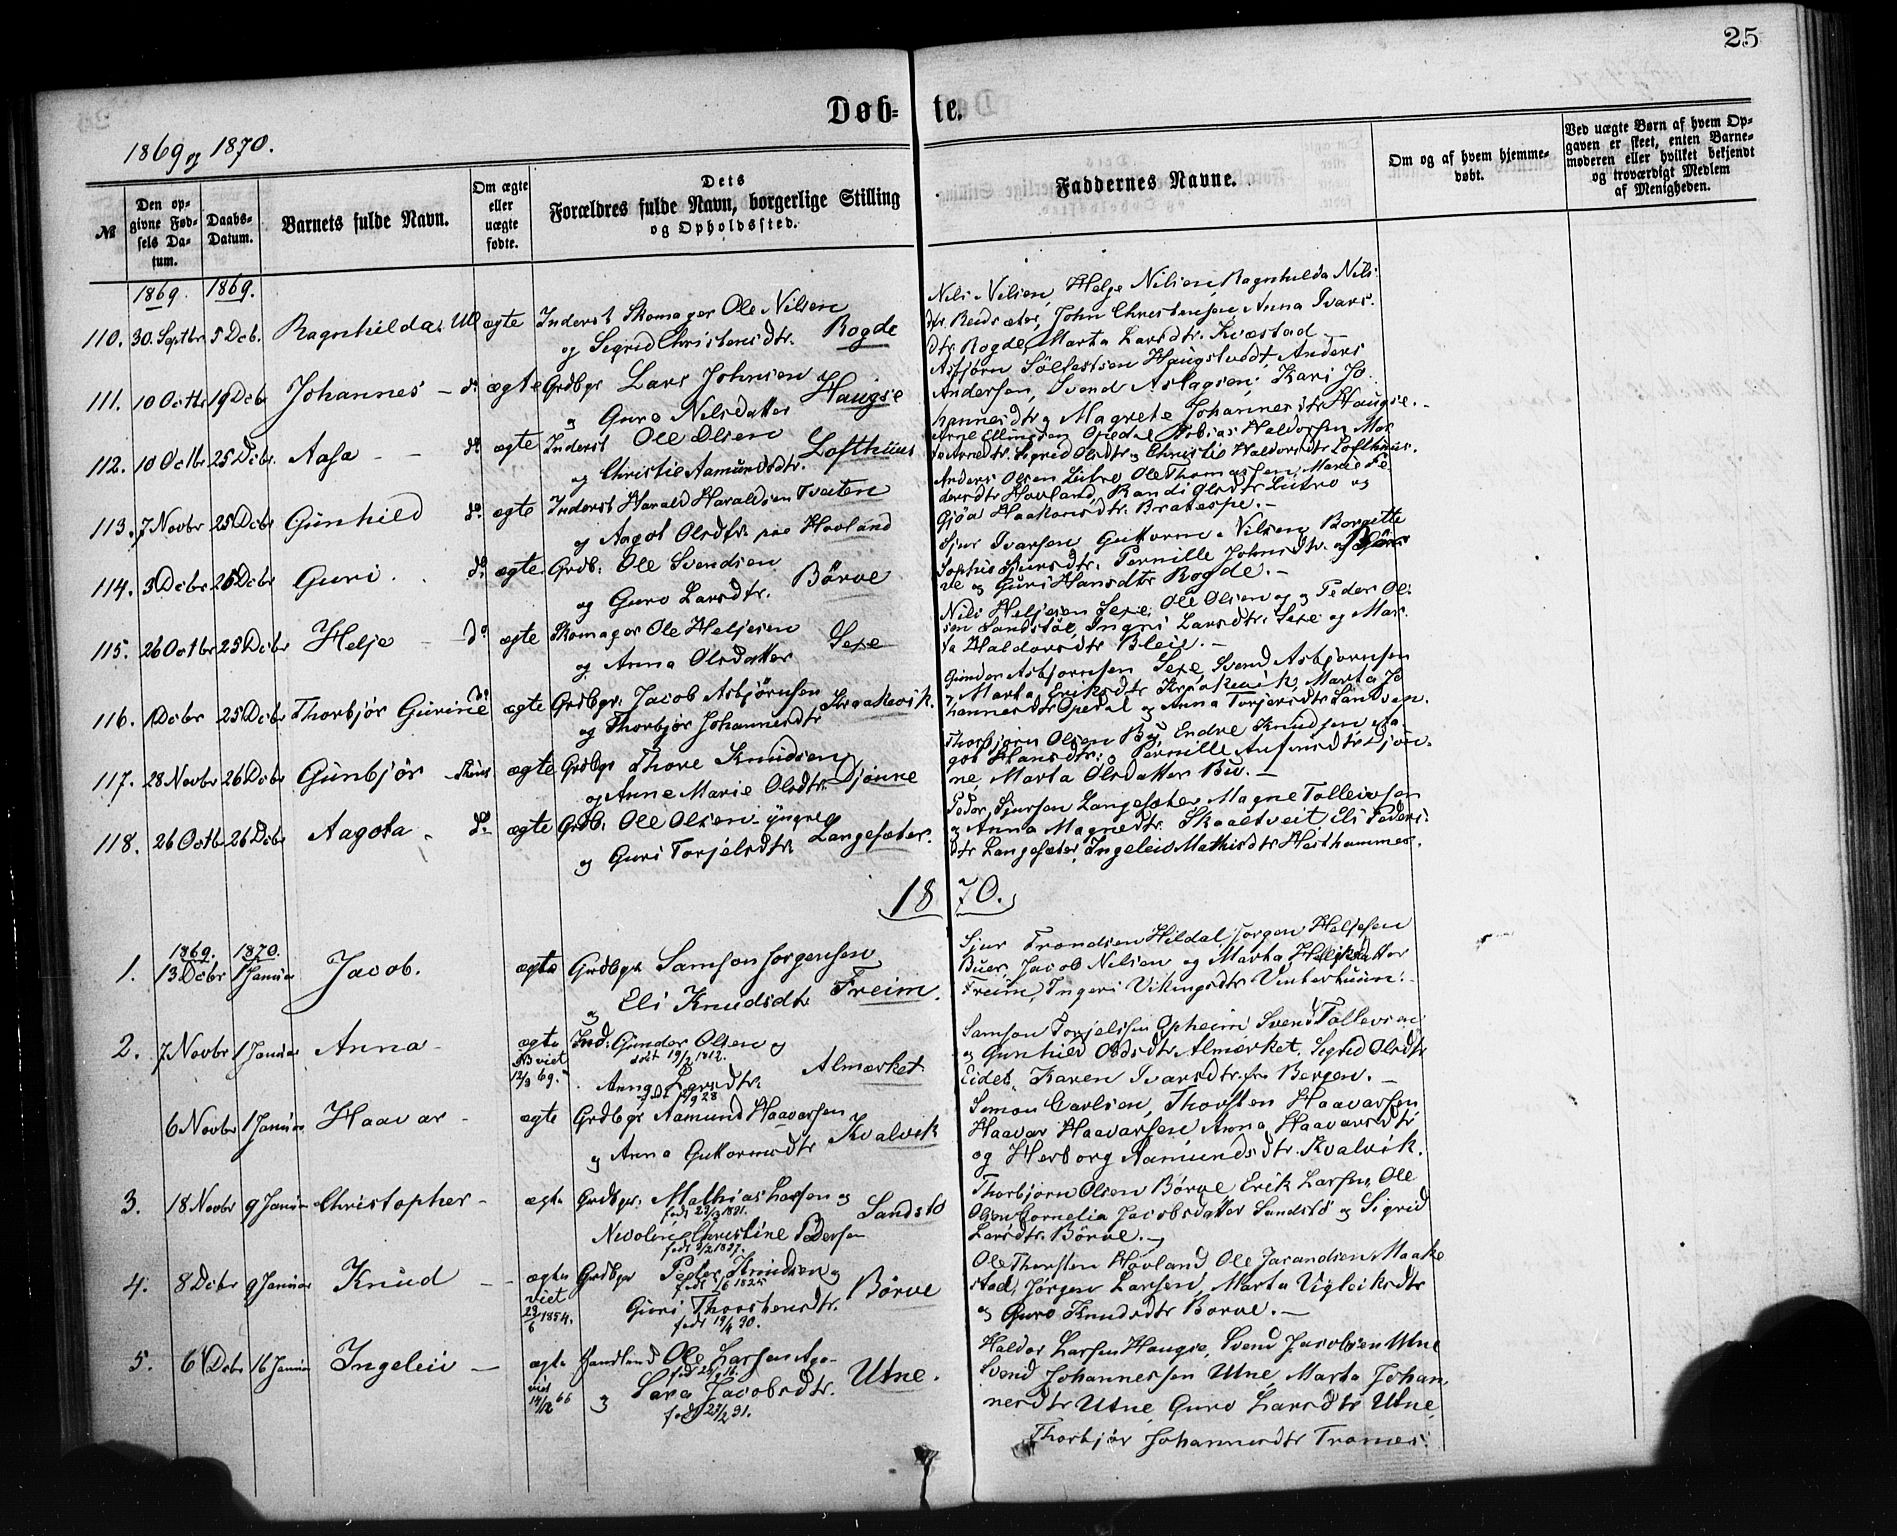 25
Døb- te.
1869 og 1870.
№
Den opgivne Fødsels Datum.
Daabs-Datum.
Barnets fulde Navn.
Om ægte eller uægte fødte.
Dets Forældres fulde Navn, borgerlige Stilling og Opholdssted.
Faddernes Navne.
Om og af hvem hjemmedøbt.
Ved uægte Børn af hvem Opgaven er skeet, enten Barnemoderen eller hvilket bekjendt og troværdigt Medlem af Menigheden.
1869. 1869.
110. 30. Septbr 5 Dcb. Ragnhilda. Ul ægte Inderst Skomager Ole Nilsen
og Sigrid Christensdtr. Rogde
Nils Nilsen, Helge Nilsen, Ragnhilda Nils
dtr. Reisæter, John Christensen, Anna Ivars.
dtr Rogde, Marta Larsdtr. Kvæstad —
111. 10 Octbr 19 Dcbr Johannes — do ægte Grdbgr Lars Johnsen
og Guro Nilsdatter Haugse
Asbjørn Sølfestsen Haugstvedt, Anders
Andersen, Svend Aslagsen, Kari Jo-
hannesdtr og Magrete Johannesdtr Haugse. -
112. 10 Octbr 25 Dcbr. Aasa — — do ægte Inderst Ole Olsen
og Christie Aamundsdtr. Lofthuus
Arne Ellingsen Opedal Tobias Haldorsen Mar
ta Arnedtr. Sigrid Olsdtr og Christie Haldorsdtr Lofthuus.
113. 7 Novbr 25 Dcbr Gunhild do ægte Inderst Harald Haraldsen Tveiten
og Aagot Olsdtr. paa Hovland
Anders Olsen Lutro Ole Thomassen, Marie Pe
dersdtr Hovland, Randi Olsdtr Lutro og
Gjøa Haakonsdtr. Bratespe. -
114. 3 Dcbr 26 Dcbr Guri. do ægte Grdb. Ole Svendsen
og Guro Larsdtr. Børve
Sjur Ivarsen Guttorm Nilsen Borgitte
Sophie Sjursdtr. Pernille Johnsdtr. og Bør
ve og Guri Hansdtr Rogde. -
115. 26 Octbr 25 Dcbr Helje — do ægte Skomager Ole Heljesen
og Anna Olsdatter Sexe
Nils Heljesen Sexe, Ole Olsen og Peder Ol-
sen Sandstøl, Ingri Larsdtr. Sexe og Mar-
ta Haldorsdtr Bleie. -
116. 1 Dcbr 25 Dcbr Thorbjør Gurine do ægte Grdbgr. Jacob Asbjørnsen
og Thorbjør Johannesdtr Kraakevik.
Gunder Asbjørnsen Sexe, Svend Asbjørnsen
og Marta Eriksdtr Kraakevik, Marta Jo
hannesdtr Opedal og Anna Torjersdtr Sandsen.
117. 28 Novbr 26 Dcbr Gunbjør — ægte Grdbgr Thore Knudsen
og Anne Marie Olsdtr. Djønne
Thorbjørn Olsen Bu, Endre Knudsen Aa-
got Hansdtr. Pernille Aufinsdtr Djøn-
ne, Marta Olsdatter Bu. —
118. 26 Octbr 26 Dcbr Aagota - do ægte Grdb. Ole Olsen yngre
og Guri Torjelsdtr Langesæter.
Peder Sjursen Langesæter, Magne Tolleivsen
og Anna Magnedtr. Skaaltveit Eli Peders
dtr Langesæter, Ingeleiv Mathisdtr Hesthammer.
18 70.
1869. 1870.
1. 13 Dcbr 1 Januar Jacob. ægte Grdbgr. Samson Jørgensen
og Eli Knudsdtr Freim.
Sjur Trondsen Hildal Jørgen Heljesen
Buer, Jacob Nilsen og Marta Heljesdatter
Freim, Ingeri Vikingsdtr Vinterhuun. -
2. 7 Novbr 1 Januar Anna - ægte Ind. Gunder Olsen og
viet 12/3 69. født 19/2 1812.
Anna Larsdtr. Almærket
født 28
Samson Torjelsen Opheim Svend Tollevsen
og Gunhild Oddsdtr Almærket. Sigrid Olsdtr
Eidet, Karen Ivarsdtr. fra Bergen. —
6 Novbr 1 Januar Haavar - ægte Grdbgr Aamund Haavarsen
og Anna Guttormsdtr Kvalvik
Simon Carlsen, Thorsten Haavarsen
Haavar Haavarsen Anna Haavarsdtr
og Herborg Aamundsdtr. Kvalvik.
3. 18 Novbr 9 Januar Christopher - ægte Grdbgr. Mathias Larsen og
Nicoline Christine Pedersen Sandstø
Thorbjørn Olsen Børve, Erik Larsen, Ole
Olsen Cornelia Jacobsdatter Sandstø og Sigrid
Larsdtr. Børve. -
4. 8 Dcbr 9 Januar Knud — - ægte Grdbgr Peder Knudsen og
viet 23/6 1854. født 1/6 1825
Guri Thorstensdtr. Børve
født 19/4 30.
Ole Thorsten Hovland Ole Jacandsen Maake
stad, Jørgen Larsen, Marta Vigleiksdtr
og Guro Knudsdtr Børve. —
5. 6 Dcbr 16 Januar Ingeleiv — ægte Ole Larsen Aga-
viet 14/12 66
og Sara Jacobsdtr. Utne.
født 23/2 31.
Haldor Larsen Haugse, Svend Jacobsen Utne
Svend Johannessen Utne, Marta Johan-
nesdtr Utne, Guro Larsdtr Utne,
Thorbjør Johannesdtr Tronæs.